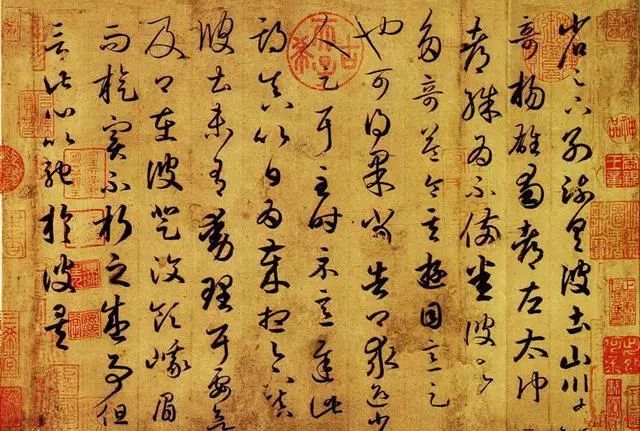 省足下别疏具彼土山川諸
奇揚雄蜀都左太沖
都殊為不備悉彼故
多奇益令其遊目意足
也可得果當告卿求迎少
人足耳至時示意遲此
期真以日為歲想足下鎮
彼土未有動理耳要欲
及卿在彼登汶領峨眉
而旋實不朽之盛事但
言此心以馳於彼矣